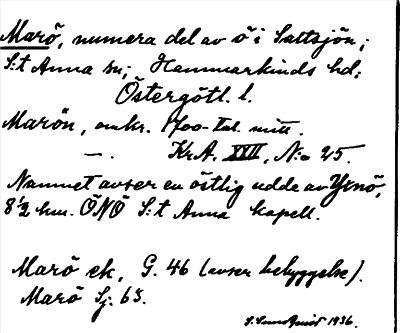 Marö, numera del av ö i Saltsjön;
S:t Anna sn; Hammarkinds hd;
Östergötl. l.
Marön, omkr. 1700-tal. mitt.
—. Kr.A. XXII, N:o 25.
Namnet avser en östlig udde av Yxnö,
8 1/2 km. ÖNÖ S:t Anna kapell.
Marö ek, G. 46 (avser bebyggelse).
Marö Sj. 65.
1936.